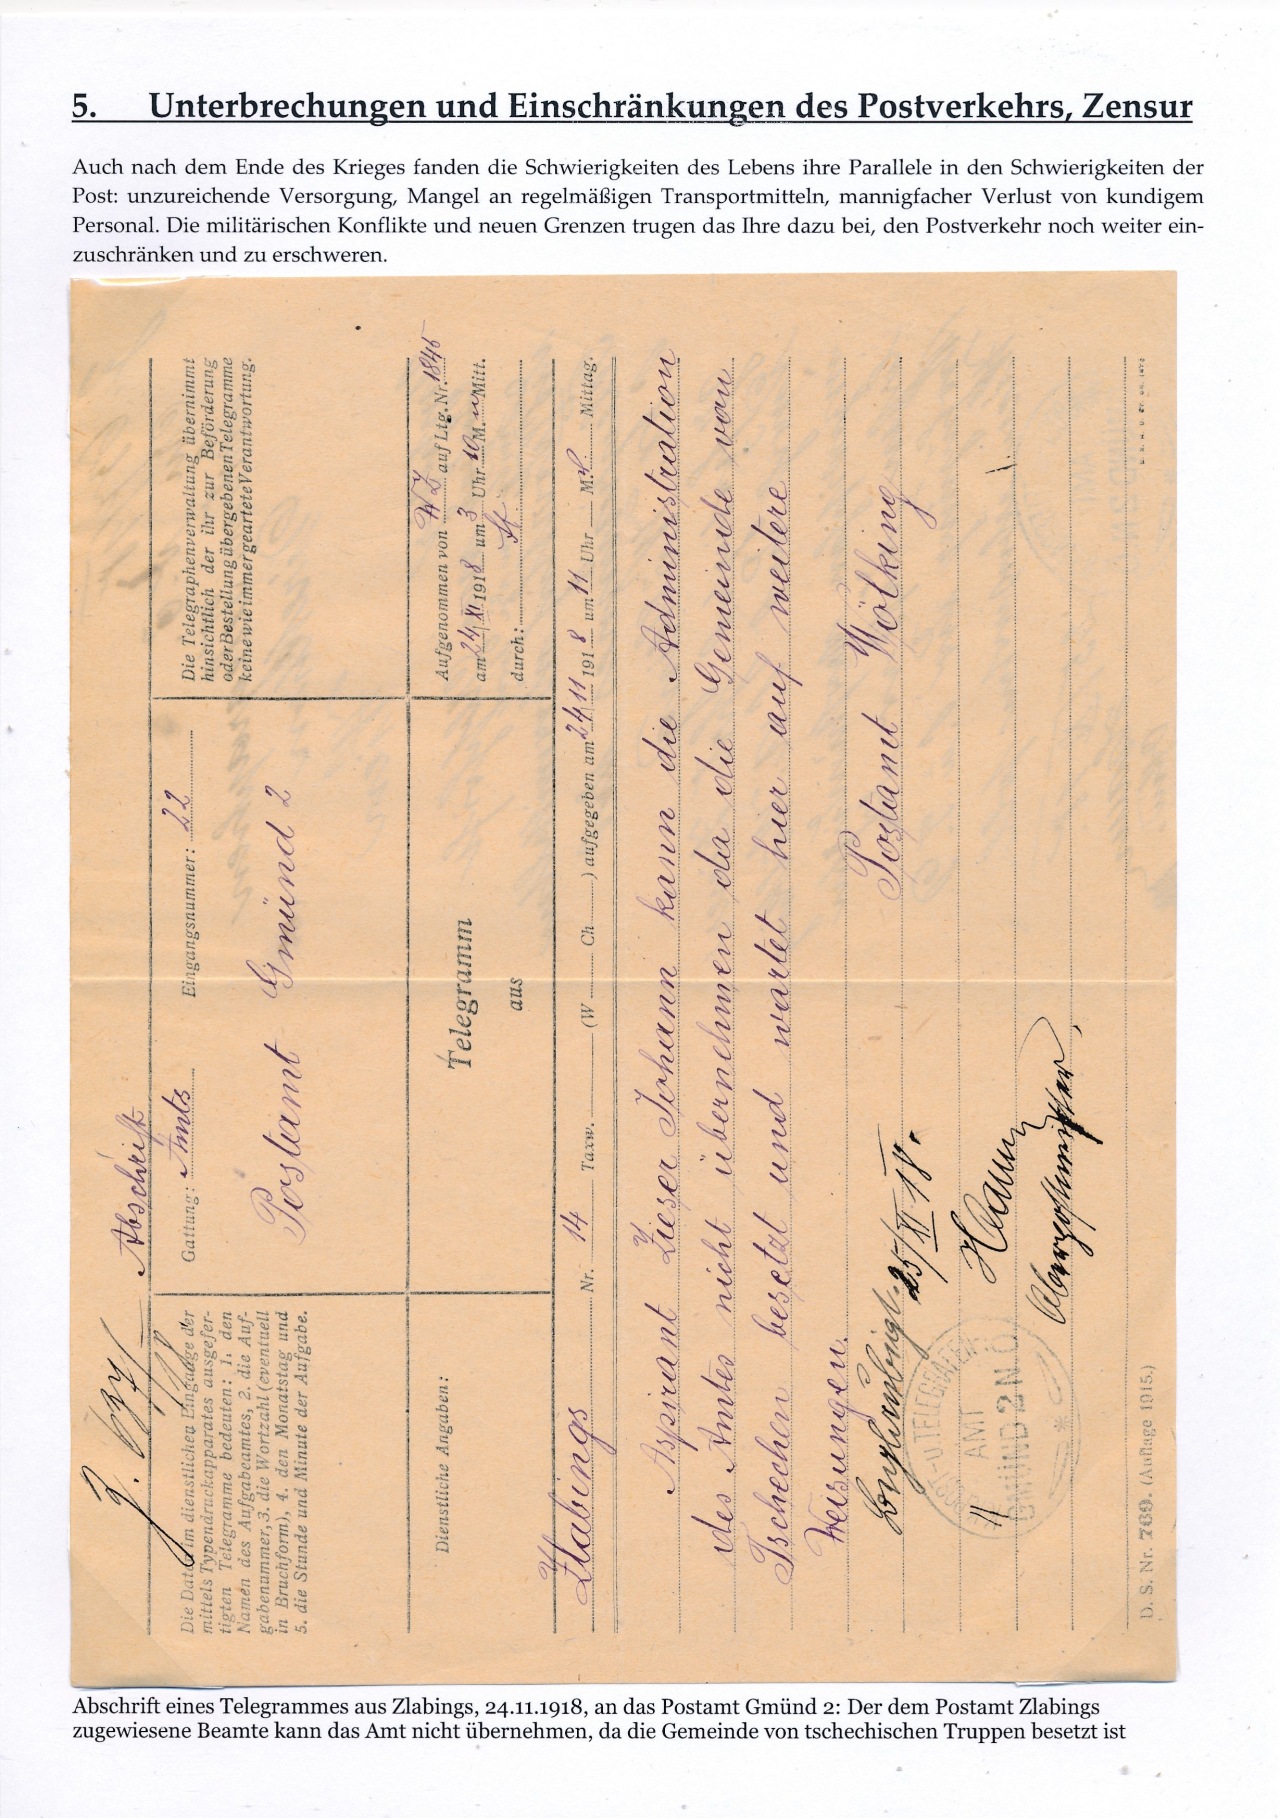 5. Unterbrechungen und Einschränkungen des Postverkehrs, Zensur
Auch nach dem Ende des Krieges fanden die Schwierigkeiten des Lebens ihre Parallele in den Schwierigkeiten der
Post: unzureichende Versorgung, Mangel an regelmäßigen Transportmitteln, mannigfacher Verlust von kundigem
Personal. Die militärischen Konflikte und neuen Grenzen trugen das Ihre dazu bei, den Postverkehr noch weiter ein-
zuschränken und zu erschweren.
Abschrift
Die Daten im dienstlichen Eingange der
mittels Typendruckapparates ausgefer-
tigten Telegramme bedeuten: 1. den
Namen des Aufgabeamtes, 2. die Auf-
gabenummer, 3. die Wortzahl (eventuell
in Bruchform), 4. den Monatstag und
5. die Stunde und Minute der Aufgabe.
Gattung: Amts Eingangsnummer: 22
Postamt Gmünd 2
Die Telegraphenverwaltung übernimmt
hinsichtlich der ihr zur Beförderung
oder Bestellung übergebenen Telegramme
keine wie immer geartete Verantwortung.
Dienstliche Angaben:
Telegramm
aus
Aufgenommen von auf Ltg. Nr. 1845
am 24/XI 1918 um 3 Uhr 10 M. n Mitt.
durch:
Zlabings Nr. 14 Taxw. (W Ch ) aufgegeben am 24/11 1918 um 11 Uhr M. Mittag.
Aspirant Zieser Johann kann die Administration
des Amtes nicht übernehmen da die Gemeinde von
Tschechen besetzt und wartet hier auf weitere
Weisungen.
Postamt Wölking
25/XI 18.
Oberpostmeister
POST-U TELEGRAFEN
AMT
GMÜND 2 N.Ö.
D. S. Nr. 769. (Auflage 1915.)
Abschrift eines Telegrammes aus Zlabings, 24.11.1918, an das Postamt Gmünd 2: Der dem Postamt Zlabings
zugewiesene Beamte kann das Amt nicht übernehmen, da die Gemeinde von tschechischen Truppen besetzt ist